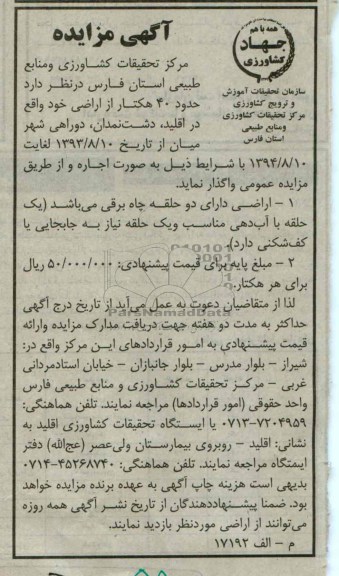 آگهی مزایده
همه با هم
جهاد
کشاورزی
سازمان تحقیقات آموزش
و ترویج کشاورزی
مرکز تحقیقات کشاورزی
ومنابع طبیعی
استان فارس
مرکز تحقیقات کشاورزی ومنابع
طبیعی استان فارس درنظر دارد
حدود ۴۰ هکتار از اراضی خود واقع
در اقلید، دشت‌نمدان، دوراهی شهر
میان از تاریخ ۱۳۹۳/۸/۱۰ لغایت
۱۳۹۴/۸/۱۰ با شرایط ذیل به صورت اجاره و از طریق
مزایده عمومی واگذار نماید.
۱ – اراضی دارای دو حلقه چاه برقی می‌باشد (یک
حلقه با آب‌دهی مناسب ویک حلقه نیاز به جابجایی یا
کف‌شکنی دارد).
۲ – مبلغ پایه برای قیمت پیشنهادی: ۵۰/۰۰۰/۰۰۰ ریال
برای هر هکتار.
لذا از متقاضیان دعوت به عمل می‌آید از تاریخ درج آگهی
حداکثر به مدت دو هفته جهت دریافت مدارک مزایده وارائه
قیمت پیشنهادی به امور قراردادهای این مرکز واقع در:
شیراز – بلوار مدرس – بلوار جانبازان – خیابان استادمردانی
غربی – مرکز تحقیقات کشاورزی و منابع طبیعی فارس
واحد حقوقی (امور قراردادها) مراجعه نمایند. تلفن هماهنگی:
۰۷۱۳-۷۲۰۴۹۵۹ یا ایستگاه تحقیقات کشاورزی اقلید به
نشانی: اقلید – روبروی بیمارستان ولی‌عصر (عج‌الله) دفتر
ایستگاه مراجعه نمایند. تلفن هماهنگی: ۰۷۱۴-۴۵۲۶۸۷۴۰
بدیهی است هزینه چاپ آگهی به عهده برنده مزایده خواهد
بود. ضمنا پیشنهاددهندگان از تاریخ نشر آگهی همه روزه
می‌توانند از اراضی موردنظر بازدید نمایند.
م – الف ۱۷۱۹۲